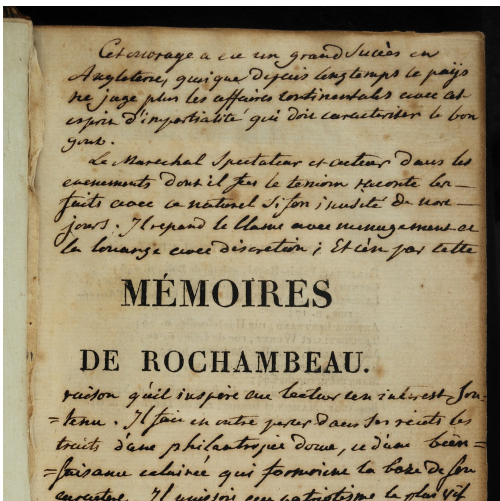 Cet ouvrage a eu un grand Succès en
Angleterre, quoique depuis longtemps le pays
ne juge plus les affaires Continentales avec cet
esprit d'impartialité qui doit caracteriser le bon
gout.
Le Marechal Spectateur et acteur dans les
evenements dont il fut le temoin raconte les
faits avec ce naturel si peu inusité de nos
jours. Il repand le blame avec menagement et
la louange avec discretion ; Et c'en par cette
MÉMOIRES
DE ROCHAMBEAU.
raison qu'il inspire au lecteur un interest Sou-
=tenu. Il fait en outre passer dans ses recits les
traits d'une philantropie douce, et d'une bien=
=faisance eclairée qui formoient la base de son
caractere. Il unissoit au patriotisme le plus vif